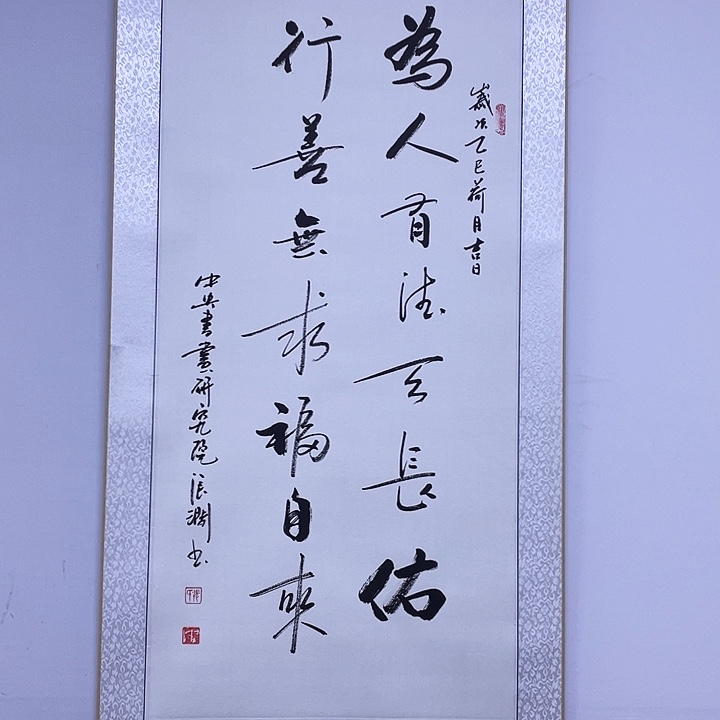 歲次乙巳荷月吉日
為人有德天長佑
行善無求福自來
中央書畫研究院張瀾书